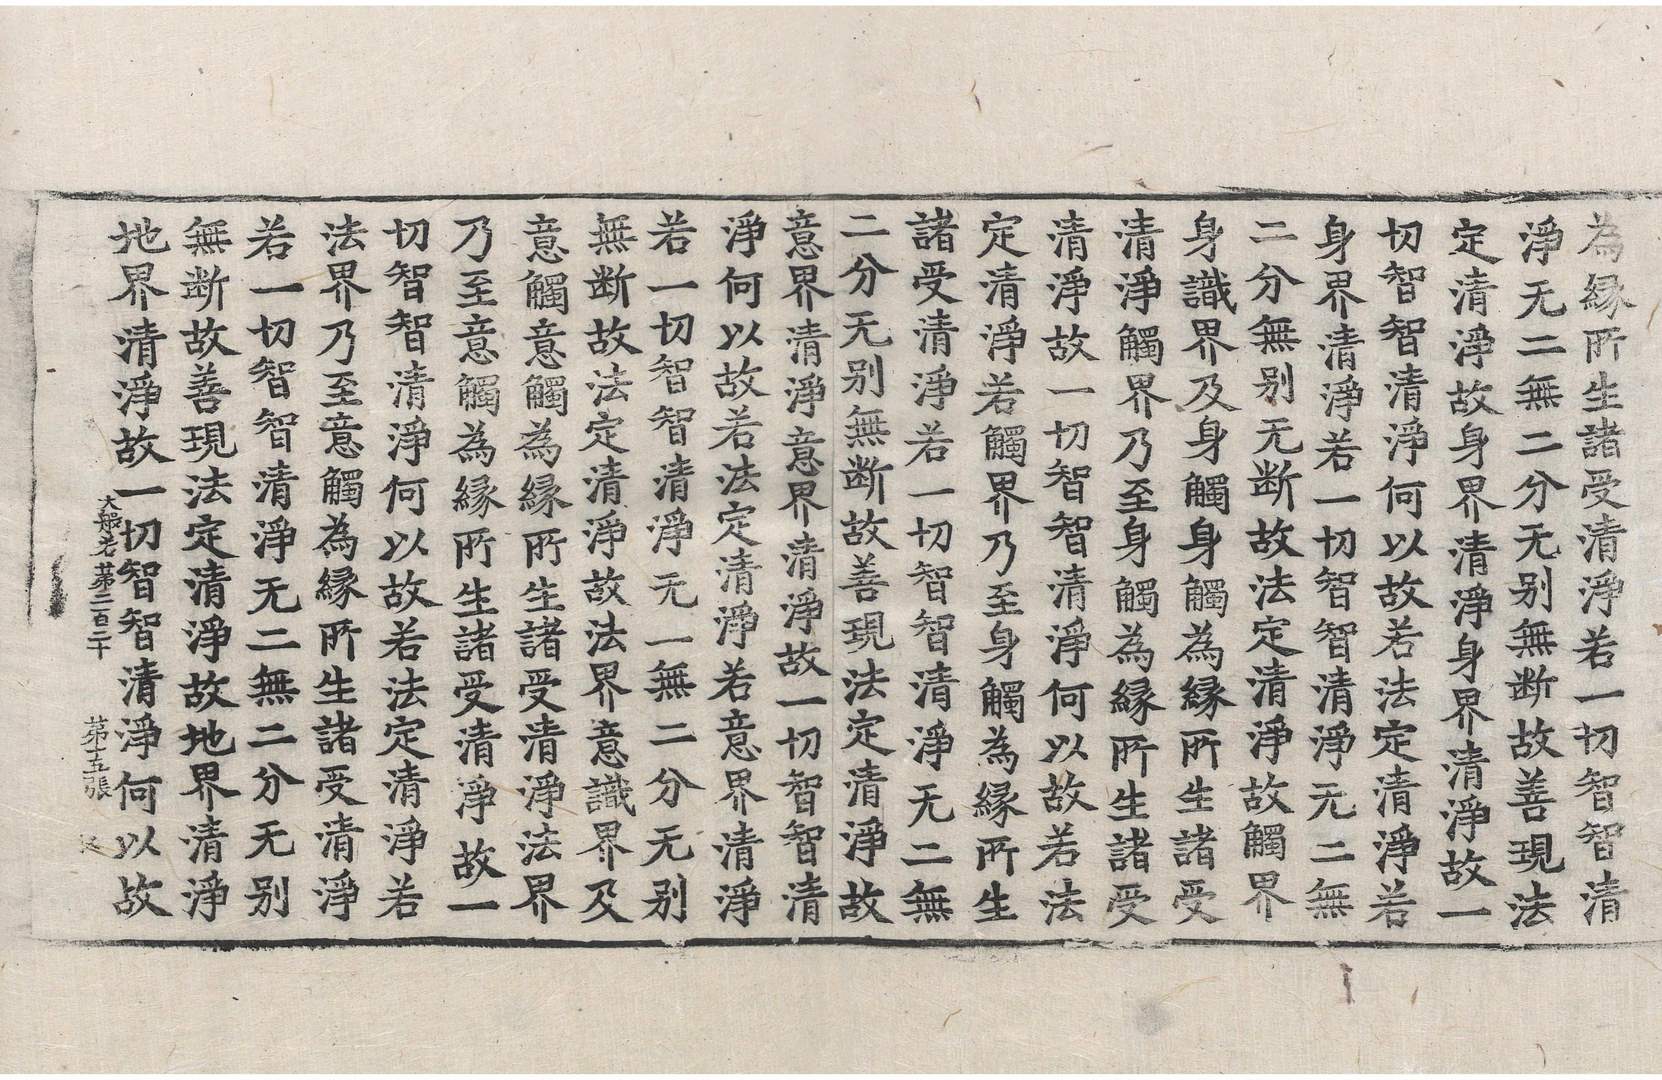 為縁所生諸受清淨若一切智智清
淨无二無二分无别無断故善現法
定清淨故身界清淨身界清淨故一
切智智清淨何以故若法定清淨若
身界清淨若一切智智清淨无二無
二分無别无断故法定清淨故觸界
身識界及身觸身觸為縁所生諸受
清淨觸界乃至身觸為縁所生諸受
清淨故一切智智清淨何以故若法
定清淨若觸界乃至身觸為縁所生
諸受清淨若一切智智清淨无二無
二分无别無断故善現法定清淨故
意界清淨意界清淨故一切智智清
淨何以故若法定清淨若意界清淨
若一切智智清淨无一無二分无别
無断故法定清淨故法界意識界及
意觸意觸為縁所生諸受清淨法界
乃至意觸為縁所生諸受清淨故一
切智智清淨何以故若法定清淨若
法界乃至意觸為縁所生諸受清淨
若一切智智清淨无二無二分无别
無断故善現法定清淨故地界清淨
地界清淨故一切智智清淨何以故
大般若苐二百二十 苐十五張